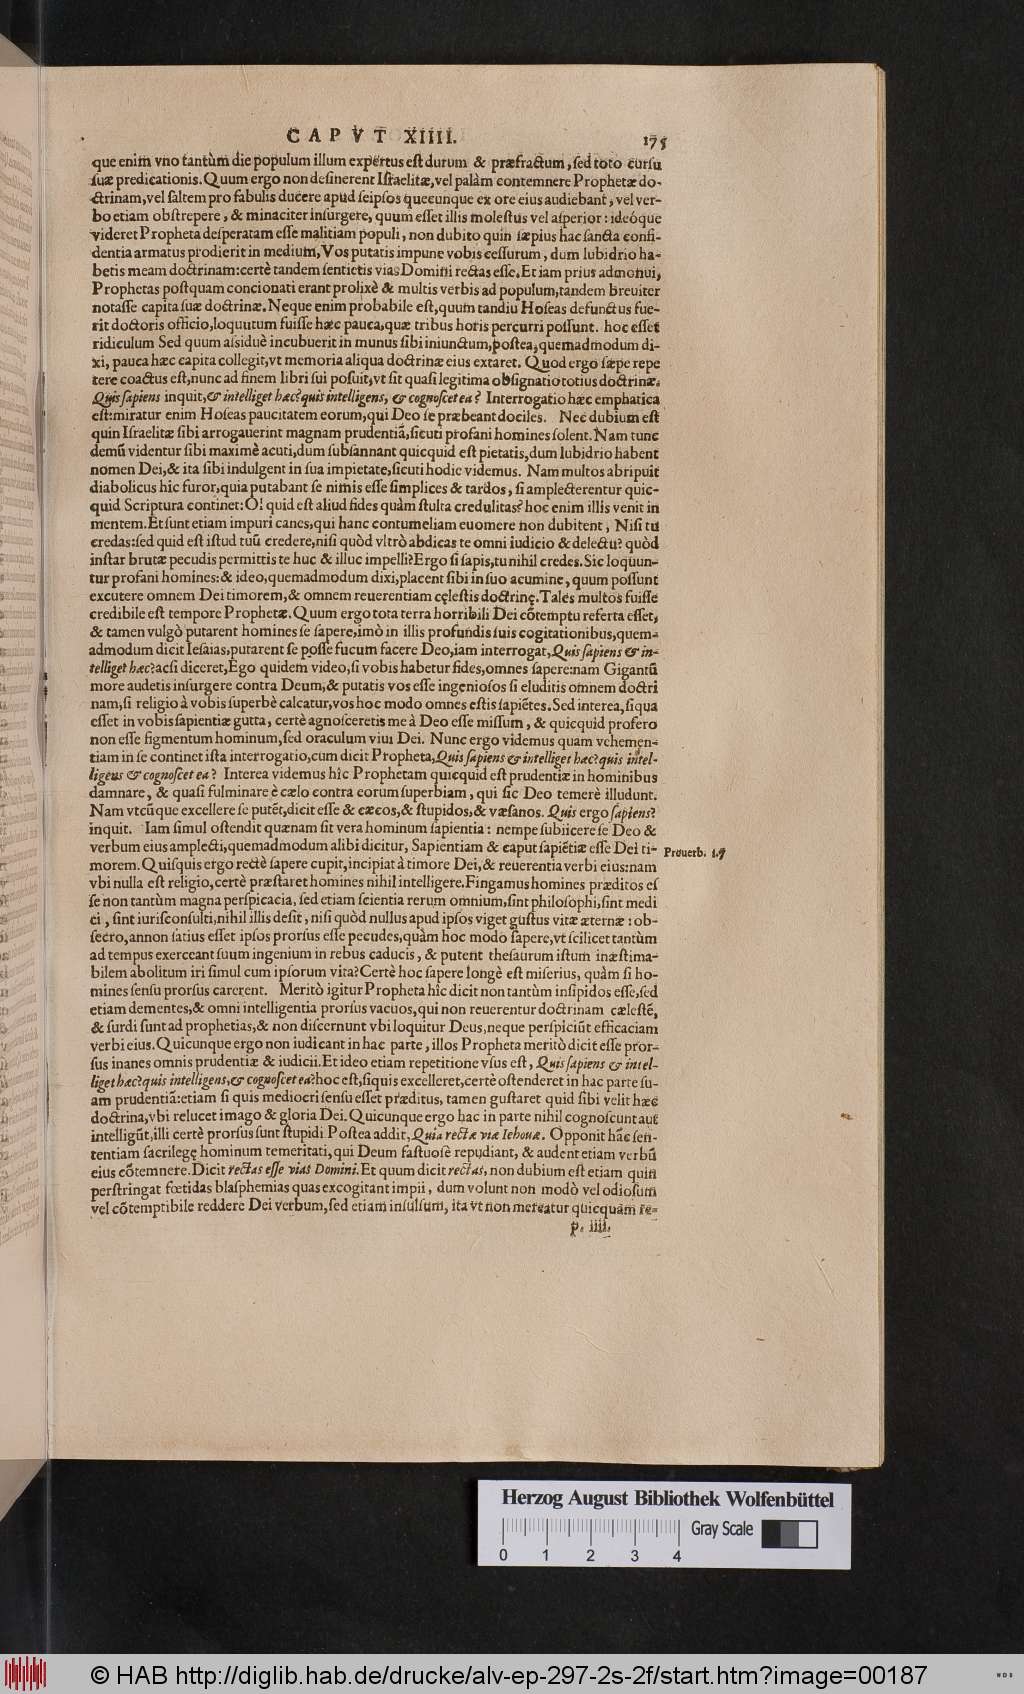 CAPVT XIIII. 175
que enim vno tantùm die populum illum expertus est durum & præfractum, sed toto cursu
suæ predicationis. Quum ergo non desinerent Israelitæ, vel palàm contemnere Prophetæ do-
ctrinam, vel saltem pro fabulis ducere apud seipsos quecunque ex ore eius audiebant, vel ver-
bo etiam obstrepere, & minaciter insurgere, quum esset illis molestus vel asperior: ideóque
videret Propheta desperatam esse malitiam populi, non dubito quin sæpius hac sancta confi-
dentia armatus prodierit in medium, Vos putatis impune vobis cessurum, dum ludibrio ha-
betis meam doctrinam: certè tandem sentietis vias Domini rectas esse. Etiam prius admonui,
Prophetas postquam concionati erant prolixè & multis verbis ad populum, tandem breuiter
notasse capita suæ doctrinæ. Neque enim probabile est, quum tandiu Hoseas defunctus fue-
rit doctoris officio, loquutum fuisse hæc pauca, quæ tribus horis percurri possunt. hoc esset
ridiculum Sed quum assiduè incubuerit in munus sibi iniunctum, postea, quemadmodum di-
xi, pauca hæc capita collegit, vt memoria aliqua doctrinæ eius extaret. Quod ergo sæpe repe
tere coactus est, nunc ad finem libri sui posuit, vt sit quasi legitima obsignatio totius doctrinæ.
Quis sapiens inquit, & intelliget hæc? quis intelligens, & cognoscet ea? Interrogatio hæc emphatica
est: miratur enim Hoseas paucitatem eorum, qui Deo se præbeant dociles. Nec dubium est
quin Israelitæ sibi arrogauerint magnam prudentiã, sicuti profani homines solent. Nam tunc
demũ videntur sibi maximè acuti, dum subsannant quicquid est pietatis, dum ludibrio habent
nomen Dei, & ita sibi indulgent in sua impietate, sicuti hodie videmus. Nam multos abripuit
diabolicus hîc furor, quia putabant se nimis esse simplices & tardos, si amplecterentur quic-
quid Scriptura continet: O! quid est aliud fides quàm stulta credulitas? hoc enim illis venit in
mentem. Et sunt etiam impuri canes, qui hanc contumeliam euomere non dubitent, Nisi tu
credas: sed quid est istud tuũ credere, nisi quòd vltrò abdicas te omni iudicio & delectu? quòd
instar brutæ pecudis permittis te huc & illuc impelli? Ergo si sapis, tu nihil credes. Sic loquun-
tur profani homines: & ideo, quemadmodum dixi, placent sibi in suo acumine, quum possunt
excutere omnem Dei timorem, & omnem reuerentiam cęlestis doctrinę. Tales multos fuisse
credibile est tempore Prophetæ. Quum ergo tota terra horribili Dei cõtemptu referta esset,
& tamen vulgò putarent homines se sapere, imò in illis profundis suis cogitationibus, quem-
admodum dicit Iesaias, putarent se posse fucum facere Deo, iam interrogat, Quis sapiens & in-
telliget hæc? acsi diceret, Ego quidem video, si vobis habetur fides, omnes sapere: nam Gigantũ
more audetis insurgere contra Deum, & putatis vos esse ingeniosos si eluditis omnem doctri
nam, si religio à vobis superbè calcatur, vos hoc modo omnes estis sapiẽtes. Sed interea, siqua
esset in vobis sapientiæ gutta, certè agnosceretis me à Deo esse missum, & quicquid profero
non esse figmentum hominum, sed oraculum viui Dei. Nunc ergo videmus quam vehemen-
tiam in se continet ista interrogatio, cum dicit Propheta, Quis sapiens & intelliget hæc? quis intel-
ligens & cognoscet ea? Interea videmus hîc Prophetam quicquid est prudentiæ in hominibus
damnare, & quasi fulminare è cælo contra eorum superbiam, qui sic Deo temerè illudunt.
Nam vtcũque excellere se putẽt, dicit esse & cæcos, & stupidos, & væsanos. Quis ergo sapiens?
inquit. Iam simul ostendit quænam sit vera hominum sapientia: nempe subiicere se Deo &
verbum eius amplecti, quemadmodum alibi dicitur, Sapientiam & caput sapiẽtiæ esse Dei ti-
Prouerb. 1.7
morem. Quisquis ergo rectè sapere cupit, incipiat à timore Dei, & reuerentia verbi eius: nam
vbi nulla est religio, certè præstaret homines nihil intelligere. Fingamus homines præditos es
se non tantùm magna perspicacia, sed etiam scientia rerum omnium, sint philosophi, sint medi
ci, sint iurisconsulti, nihil illis desit, nisi quòd nullus apud ipsos viget gustus vitæ æternæ: ob-
secro, annon satius esset ipsos prorsus esse pecudes, quàm hoc modo sapere, vt scilicet tantùm
ad tempus exerceant suum ingenium in rebus caducis, & putent thesaurum istum inæstima-
bilem abolitum iri simul cum ipsorum vita? Certè hoc sapere longè est miserius, quàm si ho-
mines sensu prorsus carerent. Meritò igitur Propheta hîc dicit non tantùm insipidos esse, sed
etiam dementes, & omni intelligentia prorsus vacuos, qui non reuerentur doctrinam cælestẽ,
& surdi sunt ad prophetias, & non discernunt vbi loquitur Deus, neque perspiciũt efficaciam
verbi eius. Quicunque ergo non iudicant in hac parte, illos Propheta meritò dicit esse pror-
sus inanes omnis prudentiæ & iudicii. Et ideo etiam repetitione vsus est, Quis sapiens & intel-
liget hæc? quis intelligens, & cognoscet ea? hoc est, siquis excelleret, certè ostenderet in hac parte su-
am prudentiã: etiam si quis mediocri sensu esset præditus, tamen gustaret quid sibi velit hæc
doctrina, vbi relucet imago & gloria Dei. Quicunque ergo hac in parte nihil cognoscunt aut
intelligũt, illi certè prorsus sunt stupidi Postea addit, Quia rectæ viæ Iehouæ. Opponit hãc sen-
tentiam sacrilegę hominum temeritati, qui Deum fastuosè repudiant, & audent etiam verbũ
eius cõtemnere. Dicit rectas esse vias Domini. Et quum dicit rectas, non dubium est etiam quin
perstringat fœtidas blasphemias quas excogitant impii, dum volunt non modò vel odiosum
vel cõtemptibile reddere Dei verbum, sed etiam insulsum, ita vt non mereatur quicquam re-
p. iiii.
Herzog August Bibliothek Wolfenbüttel
Gray Scale
0 1 2 3 4
© HAB http://diglib.hab.de/drucke/alv-ep-297-2s-2f/start.htm?image=00187